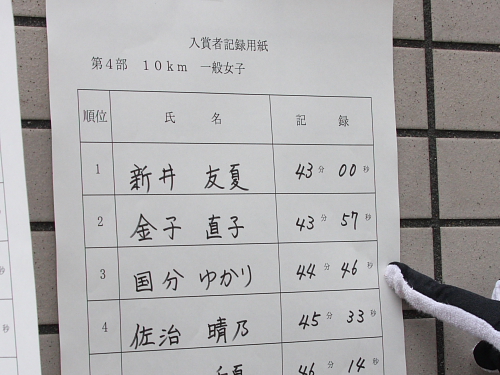 入賞者記録用紙
第4部 10km 一般女子
順位 氏名 記録
1 新井 友夏 43分00秒
2 金子 直子 43分57秒
3 国分 ゆかり 44分46秒
4 佐治 晴乃 45分33秒
46分14秒